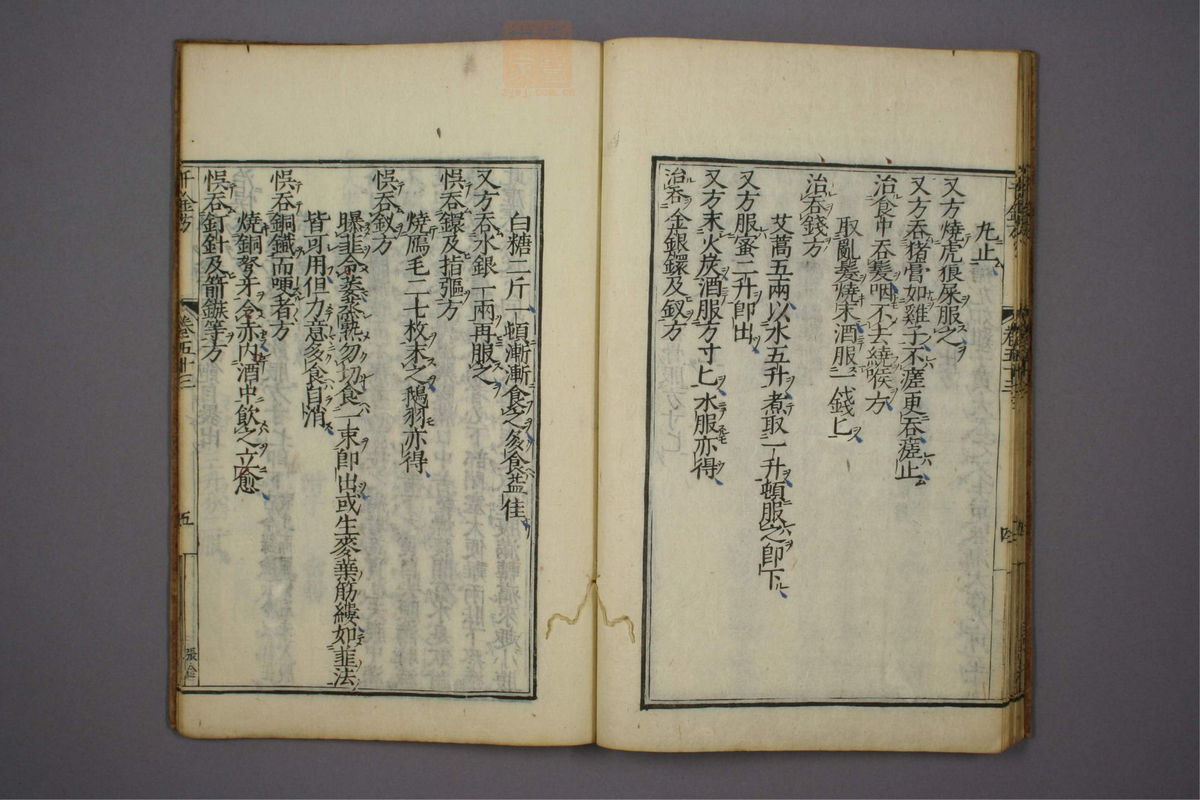 丸止
又方燒虎狼屎服之
又方吞猪膏如雞子不瘥更吞瘥止
治食中吞髮咽不去繞喉方
取亂髮燒末酒服一錢匕
治吞錢方
艾蒿五兩以水五升煮取一升頓服之即下
又方服蜜二升即出
又方末火炭酒服方寸匕水服亦得
治吞金銀鐶及釵方
白糖二斤一頓漸漸食之多食益佳
又方吞水銀一兩再服之
悞吞鐶及指彄方
燒鴈毛二七枚末之鵝羽亦得
悞吞釵方
曝韮令萎蒸熟勿切食一束即出或生麥葉筋縷如韮法
皆可用但力意多食自消
悞吞銅鐵而哽者方
燒銅弩牙令赤内酒中飲之立愈
悞吞釘針及箭鏃等方
千金方
卷五十三
五